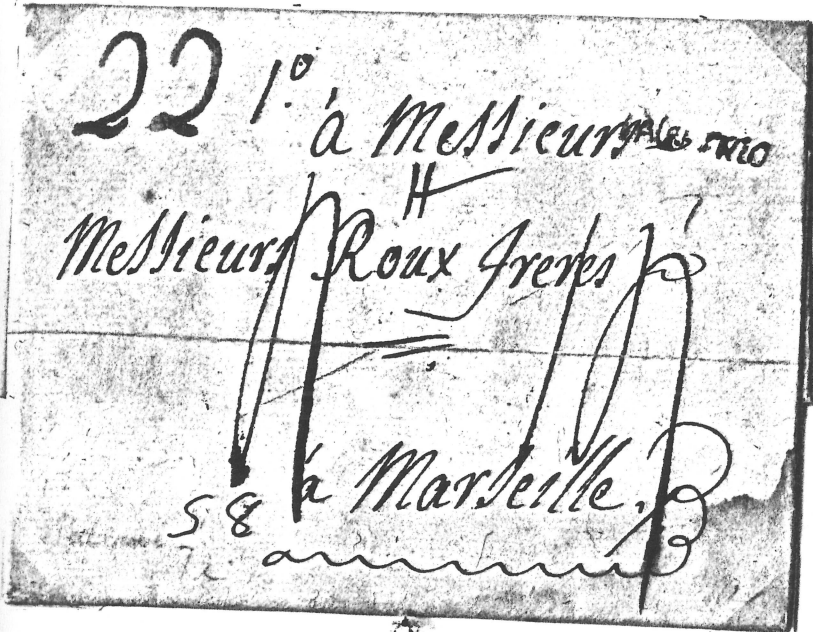 22 1º
à Messieurs
Messieurs Roux freres
à Marseille.
58